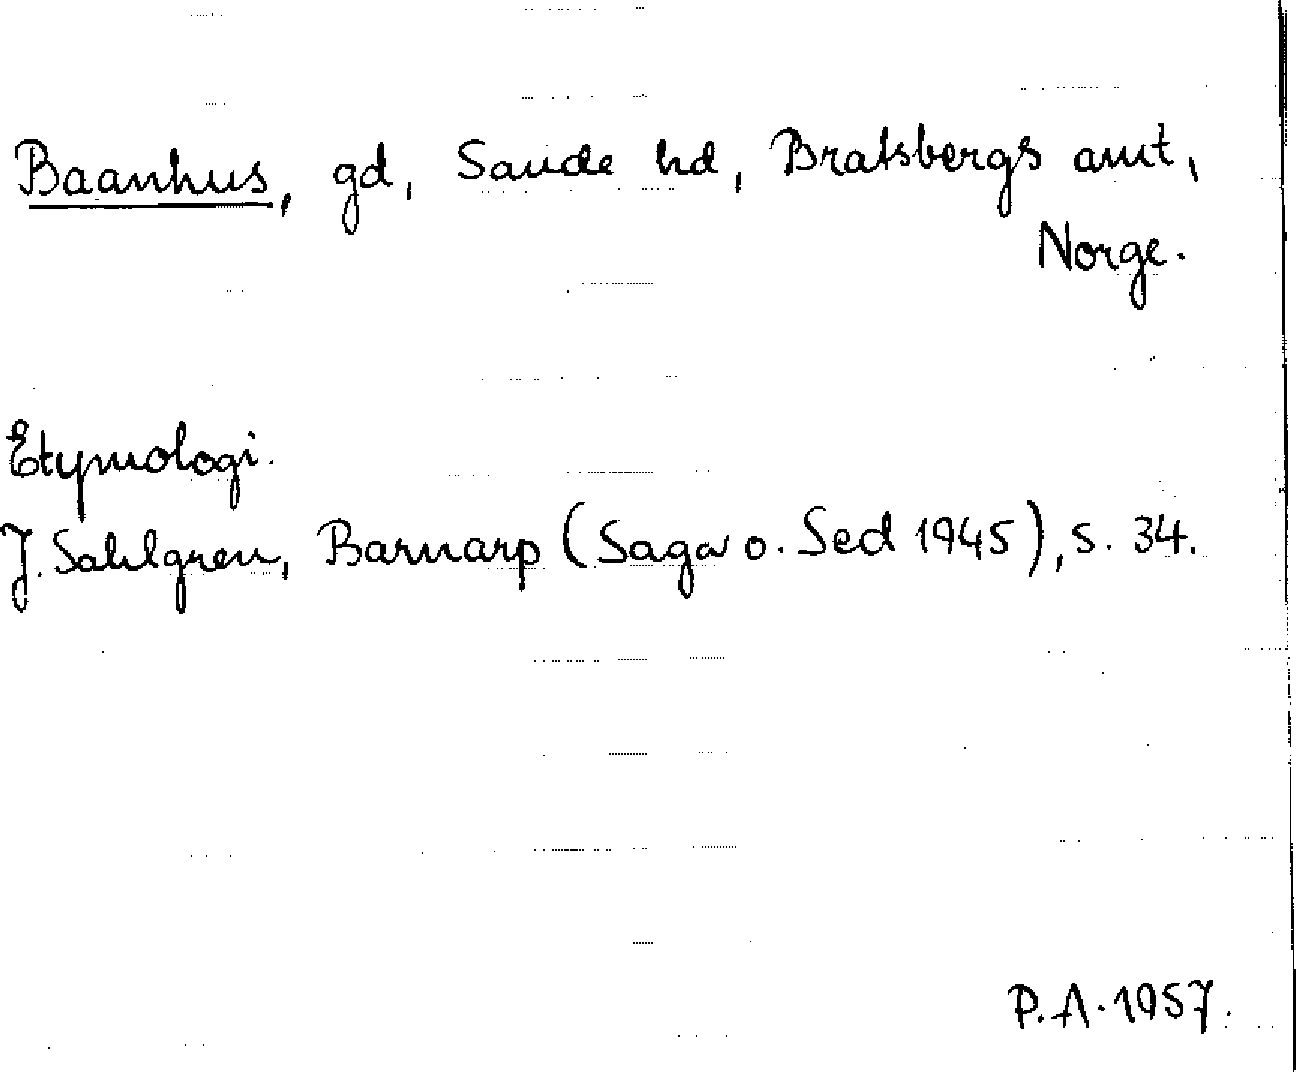 Baanhus, gd, Saude hd, Bratsbergs amt,
Norge.
Etymologi.
J. Sahlgren, Barnarp (Saga o. Sed 1945), s. 34.
P.A. 1957.